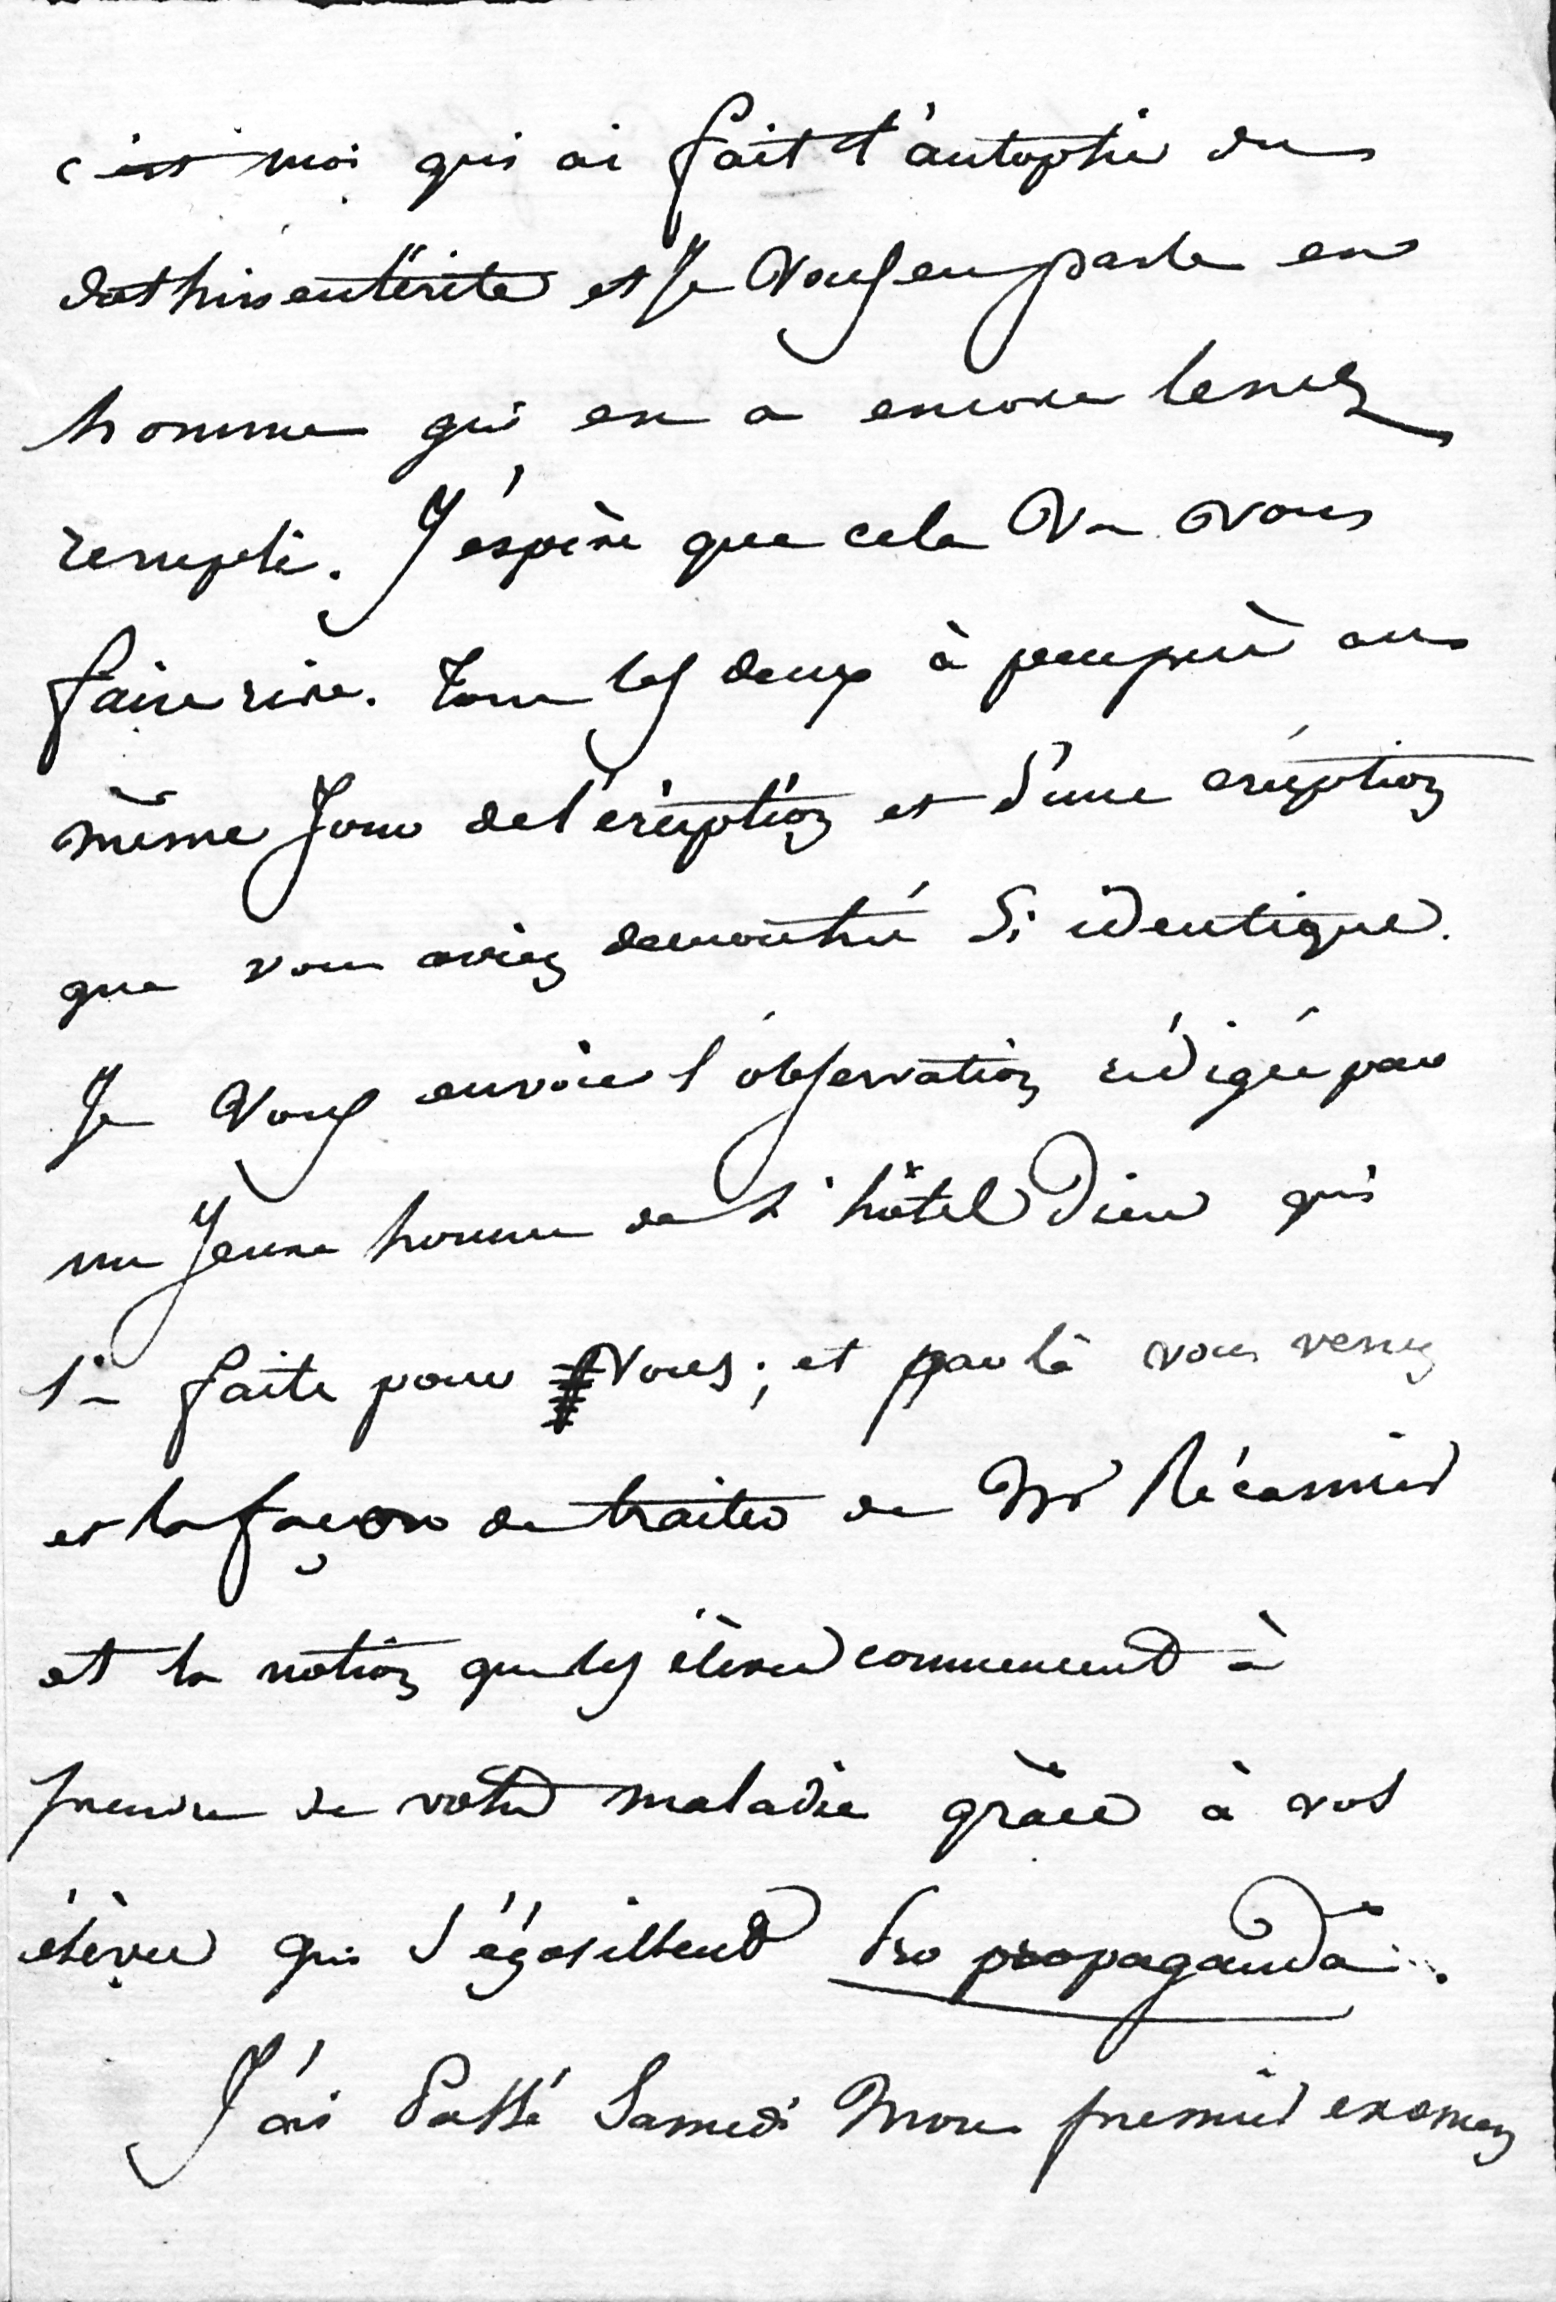 c'est moi qui ai fait l'autopsie du
dothinentérite et Je vous en parle en
homme qui en a encore le nez
rempli. J'espère que cela va vous
faire rire. tous les deux à peuprès au
même Jour de l'éruption et d'une éruption
que vous aviez demontré si identique.
Je vous envoie l'observation rédigée par
un Jeune homme de l'hôtel Dieu qui
l'a faite pour vous ; et par là vous verrez
et la façon de traiter de Mr Récamier
et la notion que les élèves commencent à
prendre de votre maladie grâce à vos
élèves qui s'égosillent pro propaganda.
J'ai passé Samedi mon premier examen